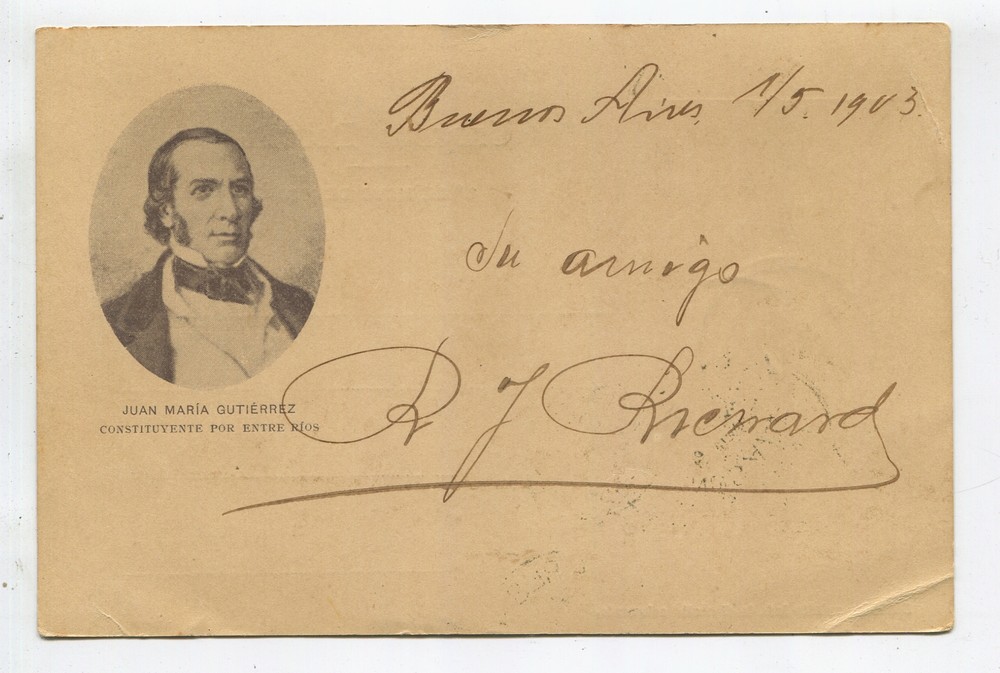 Buenos Aires, 1/5. 1903.
JUAN MARÍA GUTIÉRREZ
CONSTITUYENTE POR ENTRE RÍOS
Su amigo
R J